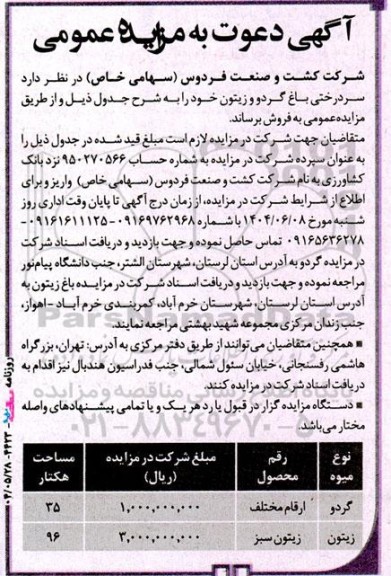 آگهی دعوت به مزایده عمومی
شرکت کشت و صنعت فردوس (سهامی خاص) در نظر دارد
سردرختی باغ گردو و زیتون خود را به شرح جدول ذیل و از طریق
مزایده عمومی به فروش برساند.
متقاضیان جهت شرکت در مزایده لازم است مبلغ قید شده در جدول ذیل را
به عنوان سپرده شرکت در مزایده به شماره حساب ۹۵۰۲۷۰۵۶۶ نزد بانک
کشاورزی به نام شرکت کشت و صنعت فردوس (سهامی خاص) واریز و برای
اطلاع از شرایط شرکت در مزایده، از زمان درج آگهی تا پایان وقت اداری روز
شنبه مورخ ۱۴۰۴/۰۶/۰۸ با شماره ۰۹۱۶۹۷۶۲۹۶۸-۰۹۱۶۱۶۱۱۱۲۵-
۰۹۱۶۵۶۳۶۲۷۸ تماس حاصل نموده و جهت بازدید و دریافت اسناد شرکت
در مزایده گردو به آدرس استان لرستان، شهرستان الشتر، جنب دانشگاه پیام‌نور
مراجعه نموده و جهت بازدید و دریافت اسناد شرکت در مزایده باغ زیتون به
آدرس استان لرستان، شهرستان خرم آباد، کمربندی خرم آباد -اهواز،
جنب زندان مرکزی مجموعه شهید بهشتی مراجعه نمایند.
■ همچنین متقاضیان می‌توانند از طریق دفتر مرکزی به آدرس: تهران، بزرگراه
هاشمی رفسنجانی، خیابان سئول شمالی، جنب فدراسیون هندبال نیز اقدام به
دریافت اسناد شرکت در مزایده کنند.
■ دستگاه مزایده گزار در قبول یا رد هر یک و یا تمامی پیشنهادهای واصله
مختار می‌باشد.
نوع میوه	رقم محصول	مبلغ شرکت در مزایده (ریال)	مساحت هکتار
گردو	ارقام مختلف	۱,۰۰۰,۰۰۰,۰۰۰	۳۵
زیتون	زیتون سبز	۳,۰۰۰,۰۰۰,۰۰۰	۹۶
ParsNamadData
۰۲۱-۸۸۳۴۹۶۷۰
روزنامه
۰۴/۰۵/۲۸-۴۴۲۳